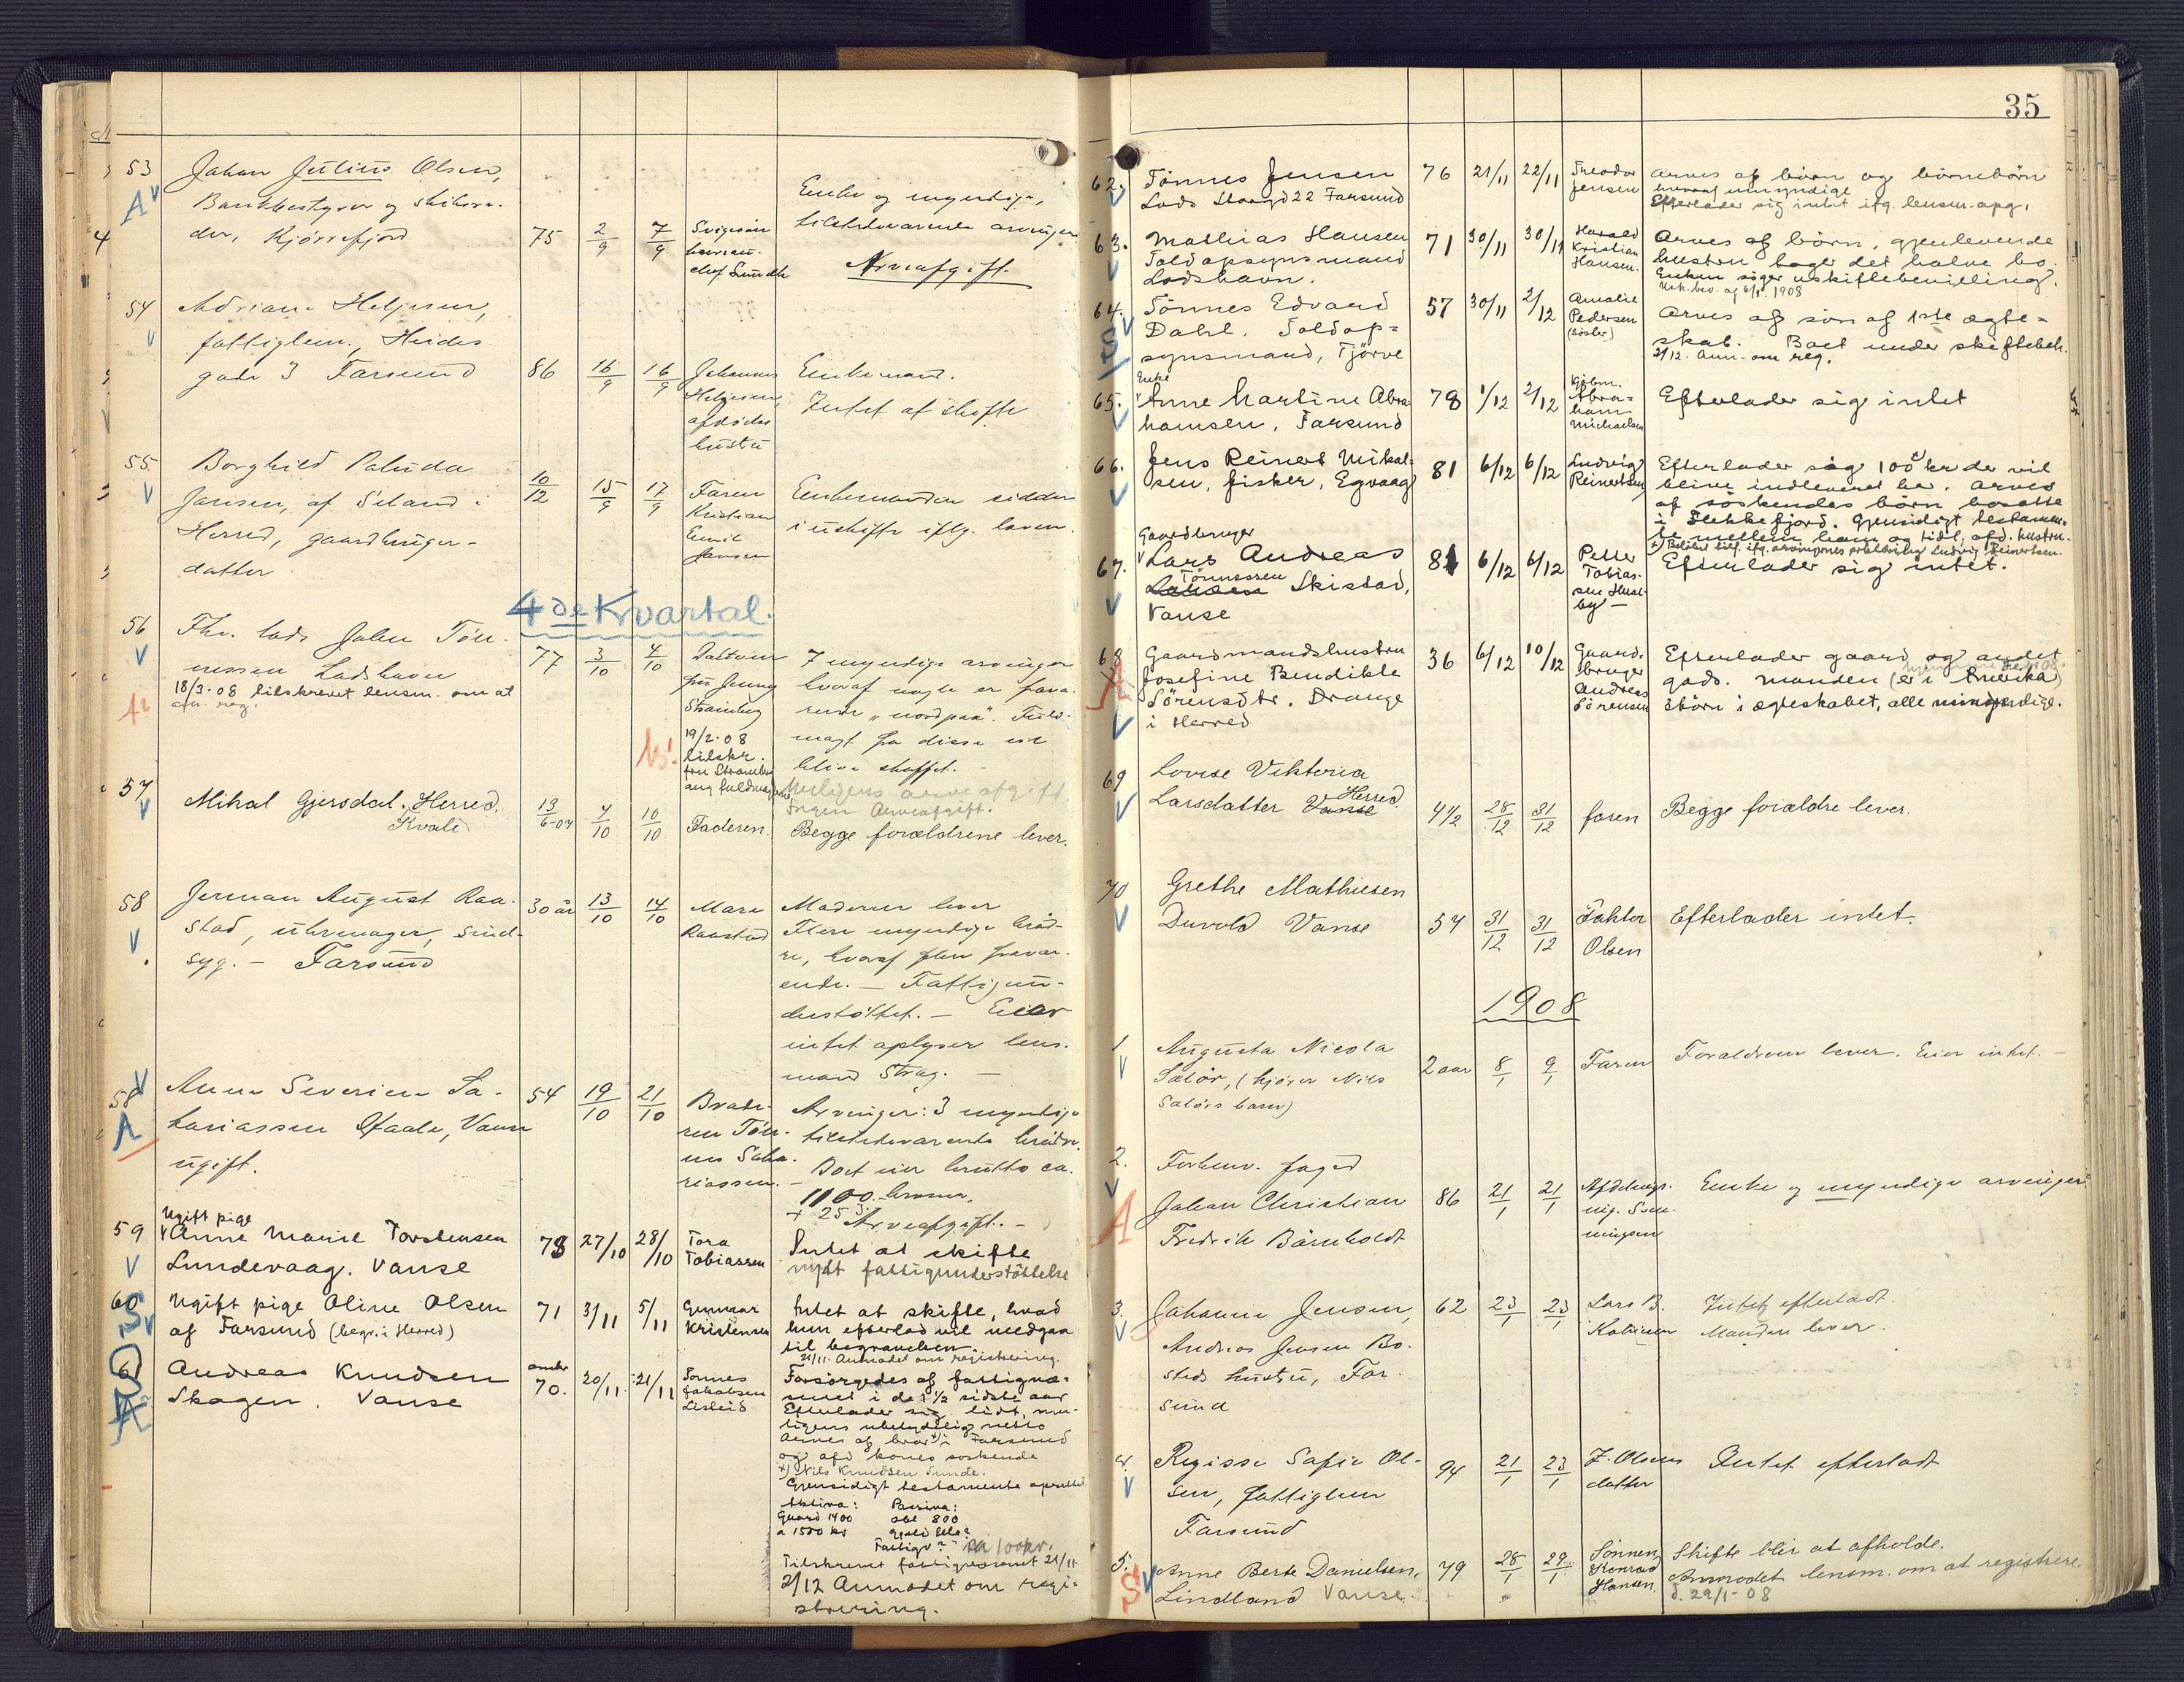 53
Johan Julius Olsen,
Bankbestyrer og skibsre-
der, Kjørrefjord
75
2/9
7/9
Svigersön
Olaf Sundt
Enke og myndige,
tilstedeværende arvinger
Arveafgift.
54
Adriane Heljesen,
fattiglem, Heides
gade 3 Farsund
86
16/9
16/9
Johannes
Heljesen,
afdödes
hustru
Enkemand.
Intet at skifte
55.
Borghild Paluda
Jansen, af Sæland i
Herred, gaardbruger-
datter
10/12
15/9
17/9
Faren
Kristian
Emil
Jansen
Enkemanden sidder
i uskifte iflg. loven.
4de Kvartal.
56
Fhv. lods John Tön-
nessen Lodshavn
18/3-08 tilskrevet lensm. om at
afh. reg.
77
3/10
4/10
Datteren
fru Jenny
Strömberg
19/2-08
tilskr.
fru Strömberg
ang fuldmagterne
7 myndige arvinger
hvoraf nogle er fravæ-
rende "nordpaa". Fuld-
magt fra disse vil
blive skaffet. -
Muligens arveafgift.
Ingen Arveafgift.
57
Mikal Gjersdal. Herred.
Kvale
13/6-04
4/10
10/10
Faderen.
Begge forældrene lever.
58
Jerman August Raa-
stad, uhrmager, sind-
syg. - Farsund
30 år
13/10
14/10
Mare
Raastad
Moderen lever
Flere myndige bröd-
re, hvoraf flere fravær-
ende. - Fattigun-
derstöttet. - Eier
intet oplyser lens-
mand Strag. -
58
Anne Severine Sa-
kariassen Ore Vanse
ugift.
54
19/10
21/10
Brode-
ren Tön-
nes Saka-
riassen. -
Arvinger: 3 myndige
tilstedeværende brödre.
Boet eier brutto ca.
1100 kroner.
Arveafgift. -
59
Ugift pige
Anne Marie Torstensen
Lundevaag. Vanse
78
27/10
28/10
Tora
Tobiassen
Intet at skifte
nydt fattigunderstöttelse
60
Ugift pige Oline Olsen
af Farsund (begr. i Herred)
71
3/11
5/11
Gunnar
Kristensen
Intet at skifte, hvad
hun efterlod vil medgaa
til begravelsen.
21/11. Anmodet om registrering.
61
Andreas Knudsen
Skagen. Vanse
omkr
70.
20/11
21/11
Tönnes
Jakobsen
Lisleid
Forsörgedes af fattigvæ-
senet i de 1 1/2 sidste aar
Efterlader sig lidt, mu-
ligens ubetydelig netto
Arves af bror +) i Farsund
og afd kones söskende
+) Nils Knudsen Sunde.
Gjensidigt testamente oprettet
Aktiva: Passiva:
Gaard 1400 obl 800
a 1500 kr
Fattigv? ca 100 kr.
Tilskrevet fattigvæsenet 21/11
2/12 Anmodet om regi-
strering.
35
62.
Tönnes Jensen
Lods Skovgd 22 Farsund
76
21/11
22/11
Theodor
Jensen
Arves af börn og börnebörn
hvoraf umyndige
Efterlader sig intet ifg. lensm. opg.
63.
Mathias Hansen
Toldopsynsmand
Lodshavn.
71
30/11
30/11
Harald
Kristian
Hansen.
Arves af börn, gjenlevende
hustru tager det halve bo.
Enken söger uskiftebevilling.
64.
Tönnes Edvard
Dahl. Toldop=
synsmand, Tjörve
57
30/11
2/12
Amalie
Pedersen
(söster)
Arves af sön af 1ste ægte=
skab. Boet under skiftebeh.
2/12. Anm. om reg.
65.
Enke
Anne Martine Abra
hamsen. Farsund
78
1/12
2/12
Kjöbm.
Abra-
ham
Michaelsen
Efterlader sig intet
66.
Jens Reinert Mikal-
sen, fisker, Egvaag
81
6/12
6/12
Ludvig
Reinertsen
Efterlader sig 100 kr de vil
blive indleveret her. Arves
af söskendes börn bosatte
i Flekkefjord. Gjensidigt testamen-
te mellem ham og tidl. afd. hustru.
67.
Gaardbruger
Lars Andreas
Tönnessen Skistad,
Vanse
81
6/12
6/12
Peder
Tobias-
sen Huse-
by -
Efterlader sig intet.
68
Gaardmandshustru
Josefine Bendikte
Sörensdtr. Drange
i Herred
36
6/12
10/12
Gaard-
bruger
Andreas
Sörensen
Efterlader gaard og andet
gods. Manden (er i Amerika)
börn i ægteskabet, alle umyndige.
69
Lovise Viktoria
Larsdatter Vanse Herred.
4 1/2
28/12
31/12
faren
Begge forældre lever.
70
Grethe Mathiesen
Duvold Vanse
54
31/12
31/12
Faktor
Olsen
Efterlader intet.
1908
1
Augusta Nicola
Salör, (kjörer Nils
Salörs barn)
2 aar
8/1
9/1
Faren
Forældrene lever. Eier intet. -
2.
Forhenv. foged
Johan Christian
Fredrik Bärnholdt
86
21/1
21/1
Enke og myndige arvinger
3.
Johanne Jensen,
Andreas Jensen Bo-
steds hustru, Far-
sund
62
23/1
23/1
Lars B.
Intet efterladt.
Manden lever.
4.
Regisse Sofie Ol-
sen, fattiglem
Farsund
94
21/1
23/1
J. Olsens
datter
Intet efterladt
5.
Anne Berte Danielsen,
Lindland Vanse.
79
28/1
29/1
Sönnen
Konrad
Hansen.
Skifte blir at afholde.
Anmodet lensm. om at registrere
d. 29/1-08